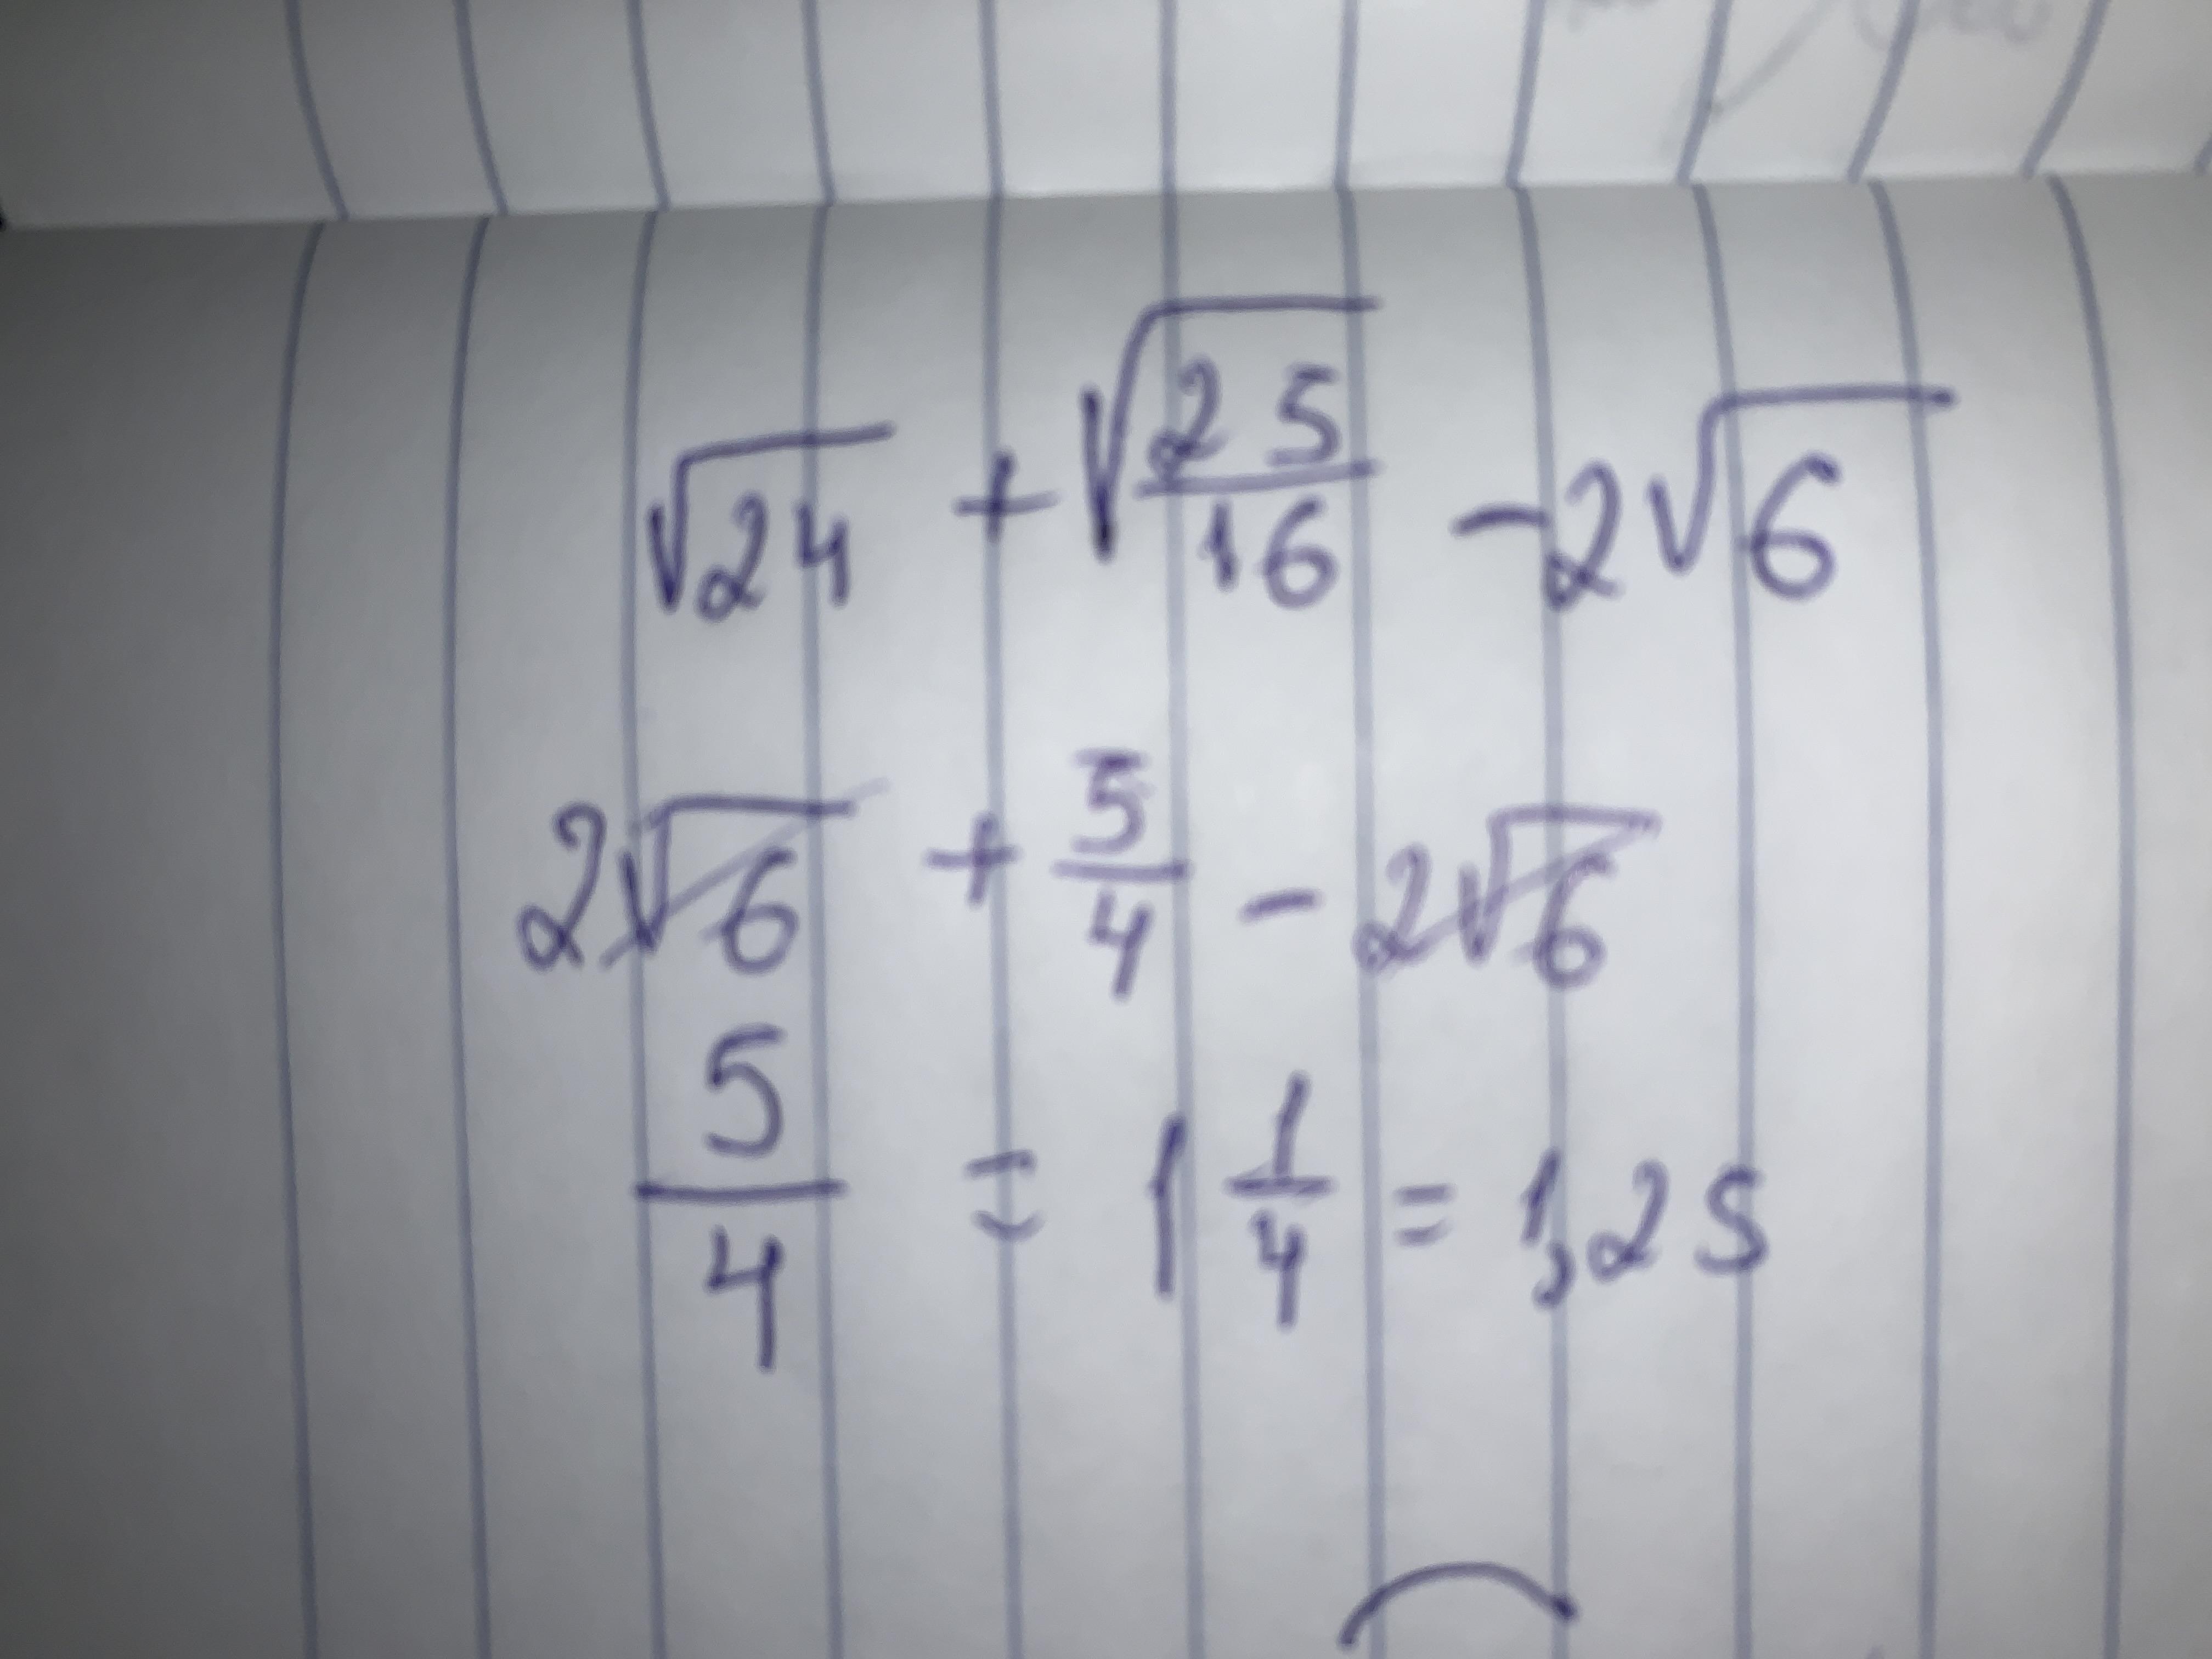 √24 + √(25/16) - 2√6
2√6 + 5/4 - 2√6
5/4 = 1 1/4 = 1,25